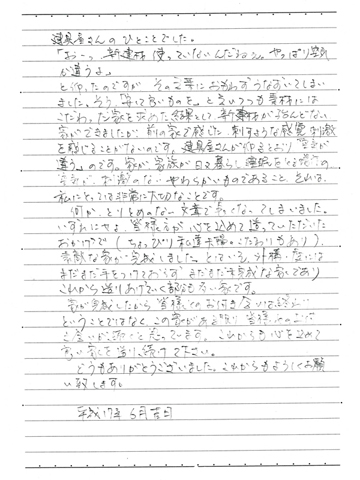 建具屋さんのひとことでした。
「おーっ、新建材 使っていないんだろう。やっぱり空気
が違うよ」
と仰ったのですが その言葉に おもわずうなずいてしまい
ました。そう、 と言いつつも素材には
こだわった家を求めた結果として新建材が殆んどない
家ができましたが 前の家で感じた 刺すような感覚 刺激
を感じることがないのです。建具屋さんが仰るとおり「空気が
違う」のです。家が、家族が日々暮し
空気が、刺激のない やわらかいものであること、それは
私にとっては非常に大切なことです。
何か、とりとめのない 文章になってしまいました。
いずれにせよ、皆様方が心を込めて造っていただいた
おかげで(ちょっぴり私達夫婦のこだわりもあり)、
素敵な家が完成しました。といっても、外構・庭には
まだまだ手をつけておらず まだまだ未完成な家であり
これから造りあげていく部分も多い家です。
家が完成したから皆様とのお付き合いも終わり
ということではなく この家がある限り 皆様との
と思っています。これからも心を込めて
良い家を造り続けて下さい。
どうもありがとうございました。これからもよろしくお願
い致します。
平成17年 6月吉日